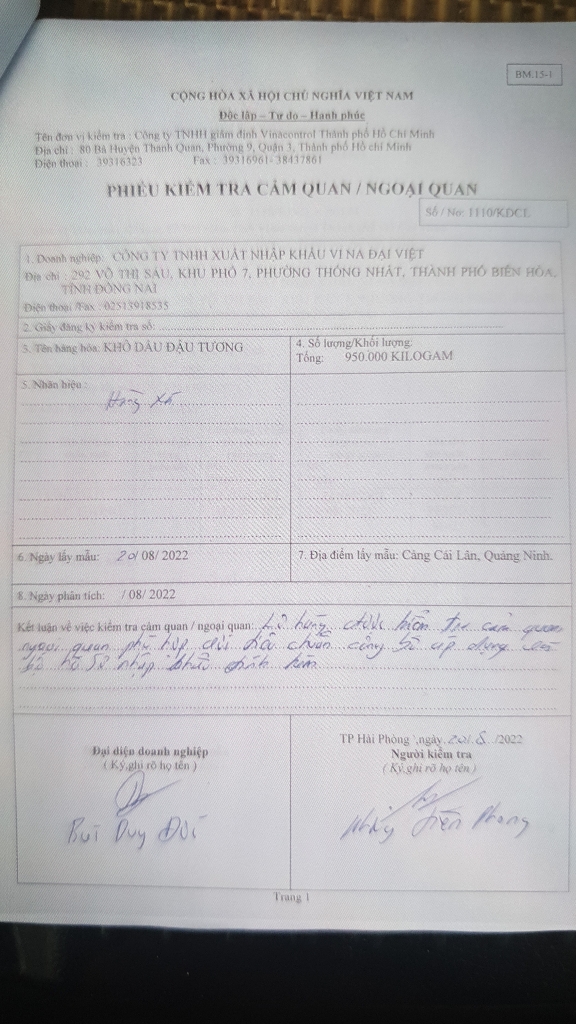 BM.15-1
CỘNG HÒA XÃ HỘI CHỦ NGHĨA VIỆT NAM
Độc lập – Tự do – Hạnh phúc
Tên đơn vị kiểm tra : Công ty TNHH giám định Vinacontrol Thành phố Hồ Chí Minh
Địa chỉ : 80 Bà Huyện Thanh Quan, Phường 9, Quận 3, Thành phố Hồ chí Minh
Điện thoại : 39316323 Fax : 39316961- 38437861
PHIẾU KIỂM TRA CẢM QUAN / NGOẠI QUAN
Số / No: 1110/KDCL
1. Doanh nghiệp: CÔNG TY TNHH XUẤT NHẬP KHẨU VI NA ĐẠI VIỆT
Địa chỉ : 292 VÕ THỊ SÁU, KHU PHỐ 7, PHƯỜNG THỐNG NHẤT, THÀNH PHỐ BIÊN HÒA,
TỈNH ĐỒNG NAI
Điện thoại /Fax : 02513918535
2. Giấy đăng ký kiểm tra số:
3. Tên hàng hóa: KHÔ DẦU ĐẬU TƯƠNG
4. Số lượng/Khối lượng:
Tổng: 950.000 KILOGAM
5. Nhãn hiệu :
Hàng xá
6. Ngày lấy mẫu: 20/ 08/ 2022
7. Địa điểm lấy mẫu: Cảng Cái Lân, Quảng Ninh.
8. Ngày phân tích: / 08/ 2022
Kết luận về việc kiểm tra cảm quan / ngoại quan: Lô hàng được kiểm tra cảm quan
ngoại quan phù hợp với tiêu chuẩn công bố áp dụng
hồ sơ nhập khẩu đính kèm
Đại diện doanh nghiệp
( Ký,ghi rõ họ tên )
Bùi Duy
TP Hải Phòng ,ngày 20/.8./2022
Người kiểm tra
( Ký,ghi rõ họ tên )
Phong
Trang 1